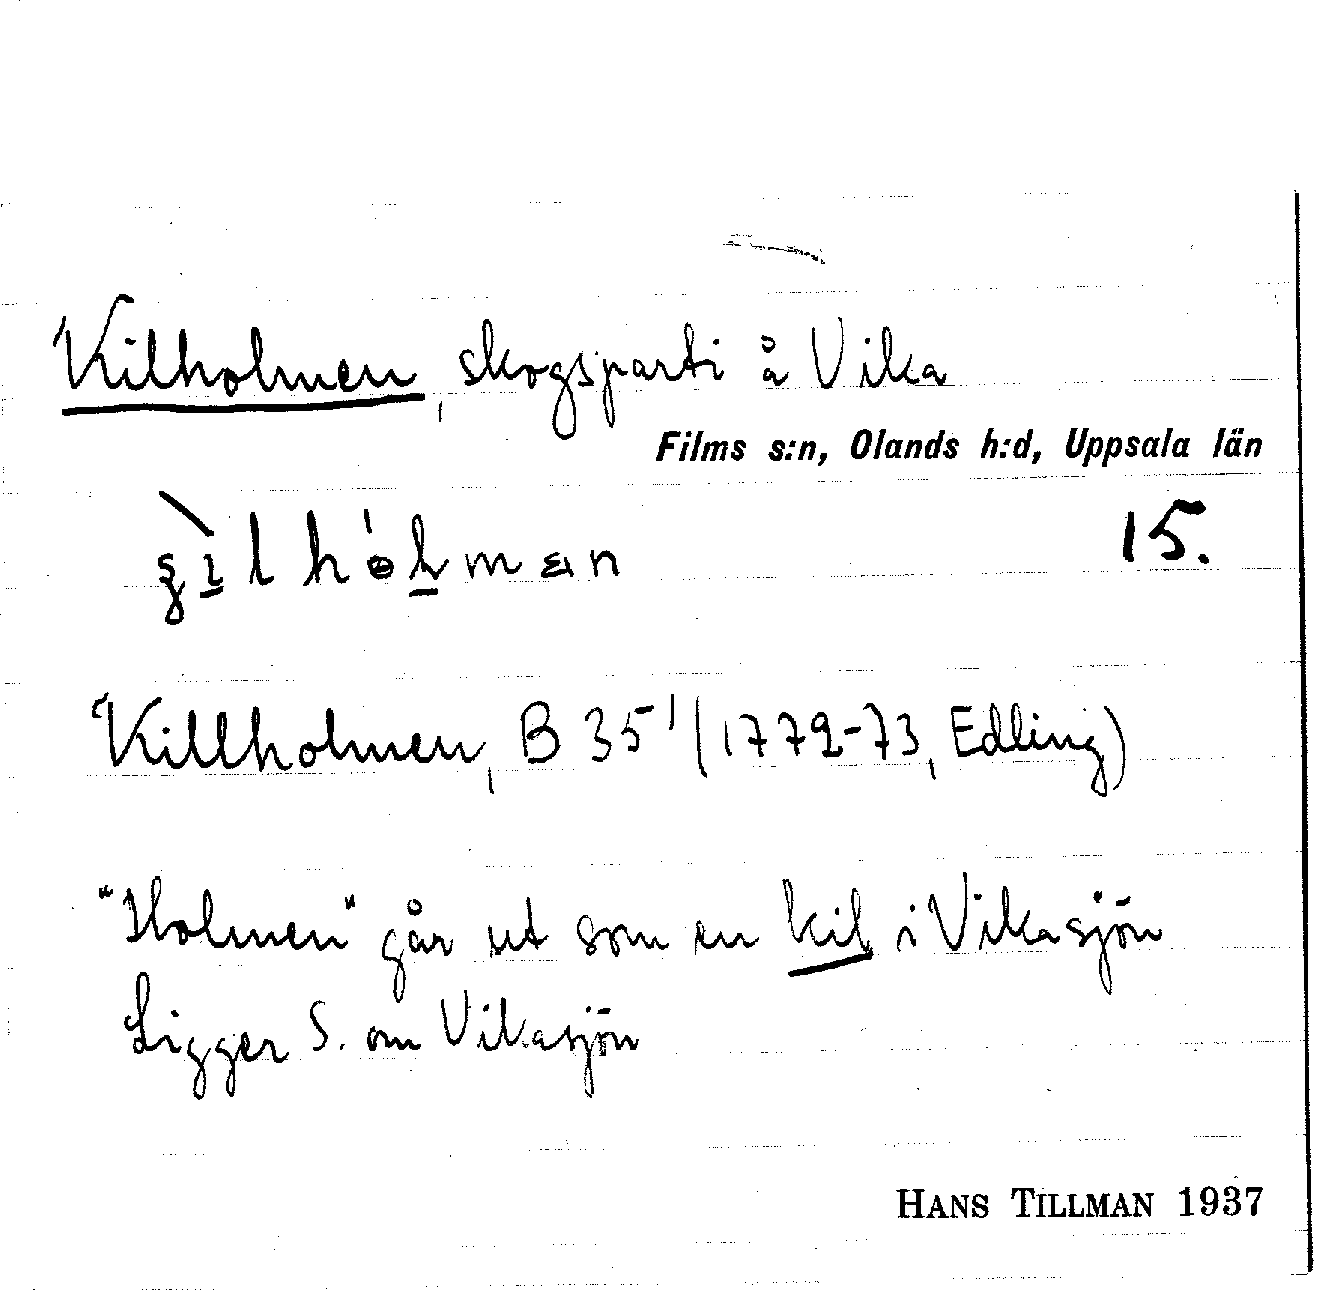 Kilholmen, skogsparti å Vika
Films s:n, Olands h:d, Uppsala län
15.
Killholmen, B 35¹ (1772-73, Edling)
"Holmen" går ut som en kil i Vikasjön
Ligger S. om Vikasjön
HANS TILLMAN 1937